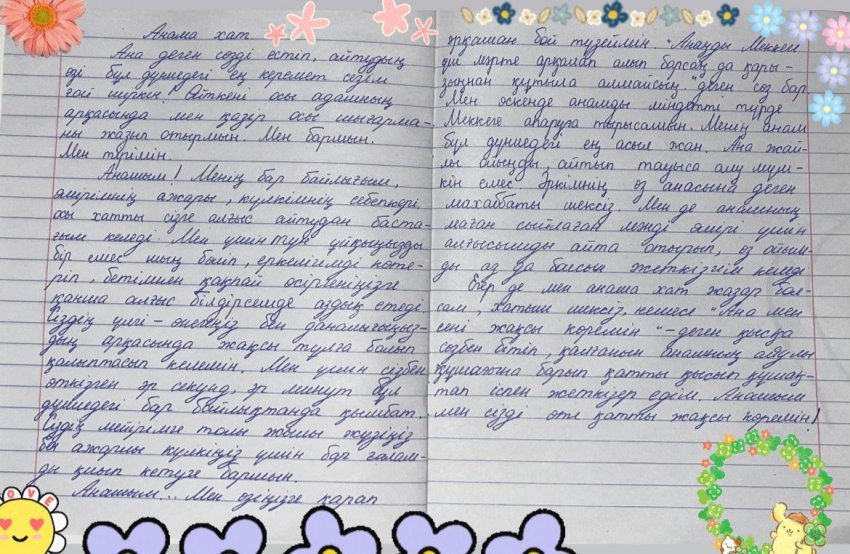 Анама хат
Ана деген сөзді естіп, айтудың
өзі бұл дүниедегі ең керемет сезім
ғой шіркін! Өйткені осы адамның
арқасында мен қазір осы шығарма-
ны жазып отырмын. Мен бармын.
Мен тірімін.
Анашым! Менің бар байлығым,
өмірімнің ажары, күлкімнің себепкері
осы хатты сізге алғыс айтудан баста-
ғым келеді. Мен үшін түн ұйқыңызды
бір емес мың бөліп, еркелігімді көте-
ріп, бетімнен қақпай өсіргеніңізге
қанша алғыс білдірсемде аздық етеді.
Сіздің үлгі-өнегеңіз бен даналығыңыз-
дың арқасында жақсы тұлға болып
қалыптасып келемін. Мен үшін сізбен
өткізген әр секунд, әр минут бұл
дүниедегі бар байлықтанда қымбат...
Сіздің мейірімге толы жылы жүзіңіз
бен ажарлы күлкіңіз үшін бар ғалам-
ды қиып кетуге бармын.
Анашым... Мен өзіңізге қарап
әрқашан бой түзеймін. "Анаңды Меккеге
үш мәрте арқалап алып барсаң да қары-
зыңнан құтыла алмайсың" деген сөз бар.
Мен өскенде анамды міндетті түрде
Меккеге апаруға тырысамын. Менің анам
бұл дүниедегі ең асыл жан. Ана жай-
лы ойыңды айтып тауыса алу мүм-
кін емес. Әркімнің өз анасына деген
махаббаты шексіз. Мен де анамның
маған сыйлаған мәнді өмірі үшін
алғысымды айта отырып, өз ойым-
ды аз да болсын жеткізгім келеді
Егер де мен анама хат жазар бол-
сам, хатым шексіз, немесе "Ана мен
сені жақсы көремін"-деген қысқа
сөзбен бітіп, қалғанын анамның аяулы
құшағына барып қатты қысып құшақ-
тап іспен жеткізер едім. Анашым
мен сізді өте қатты жақсы көремін!
LOVE